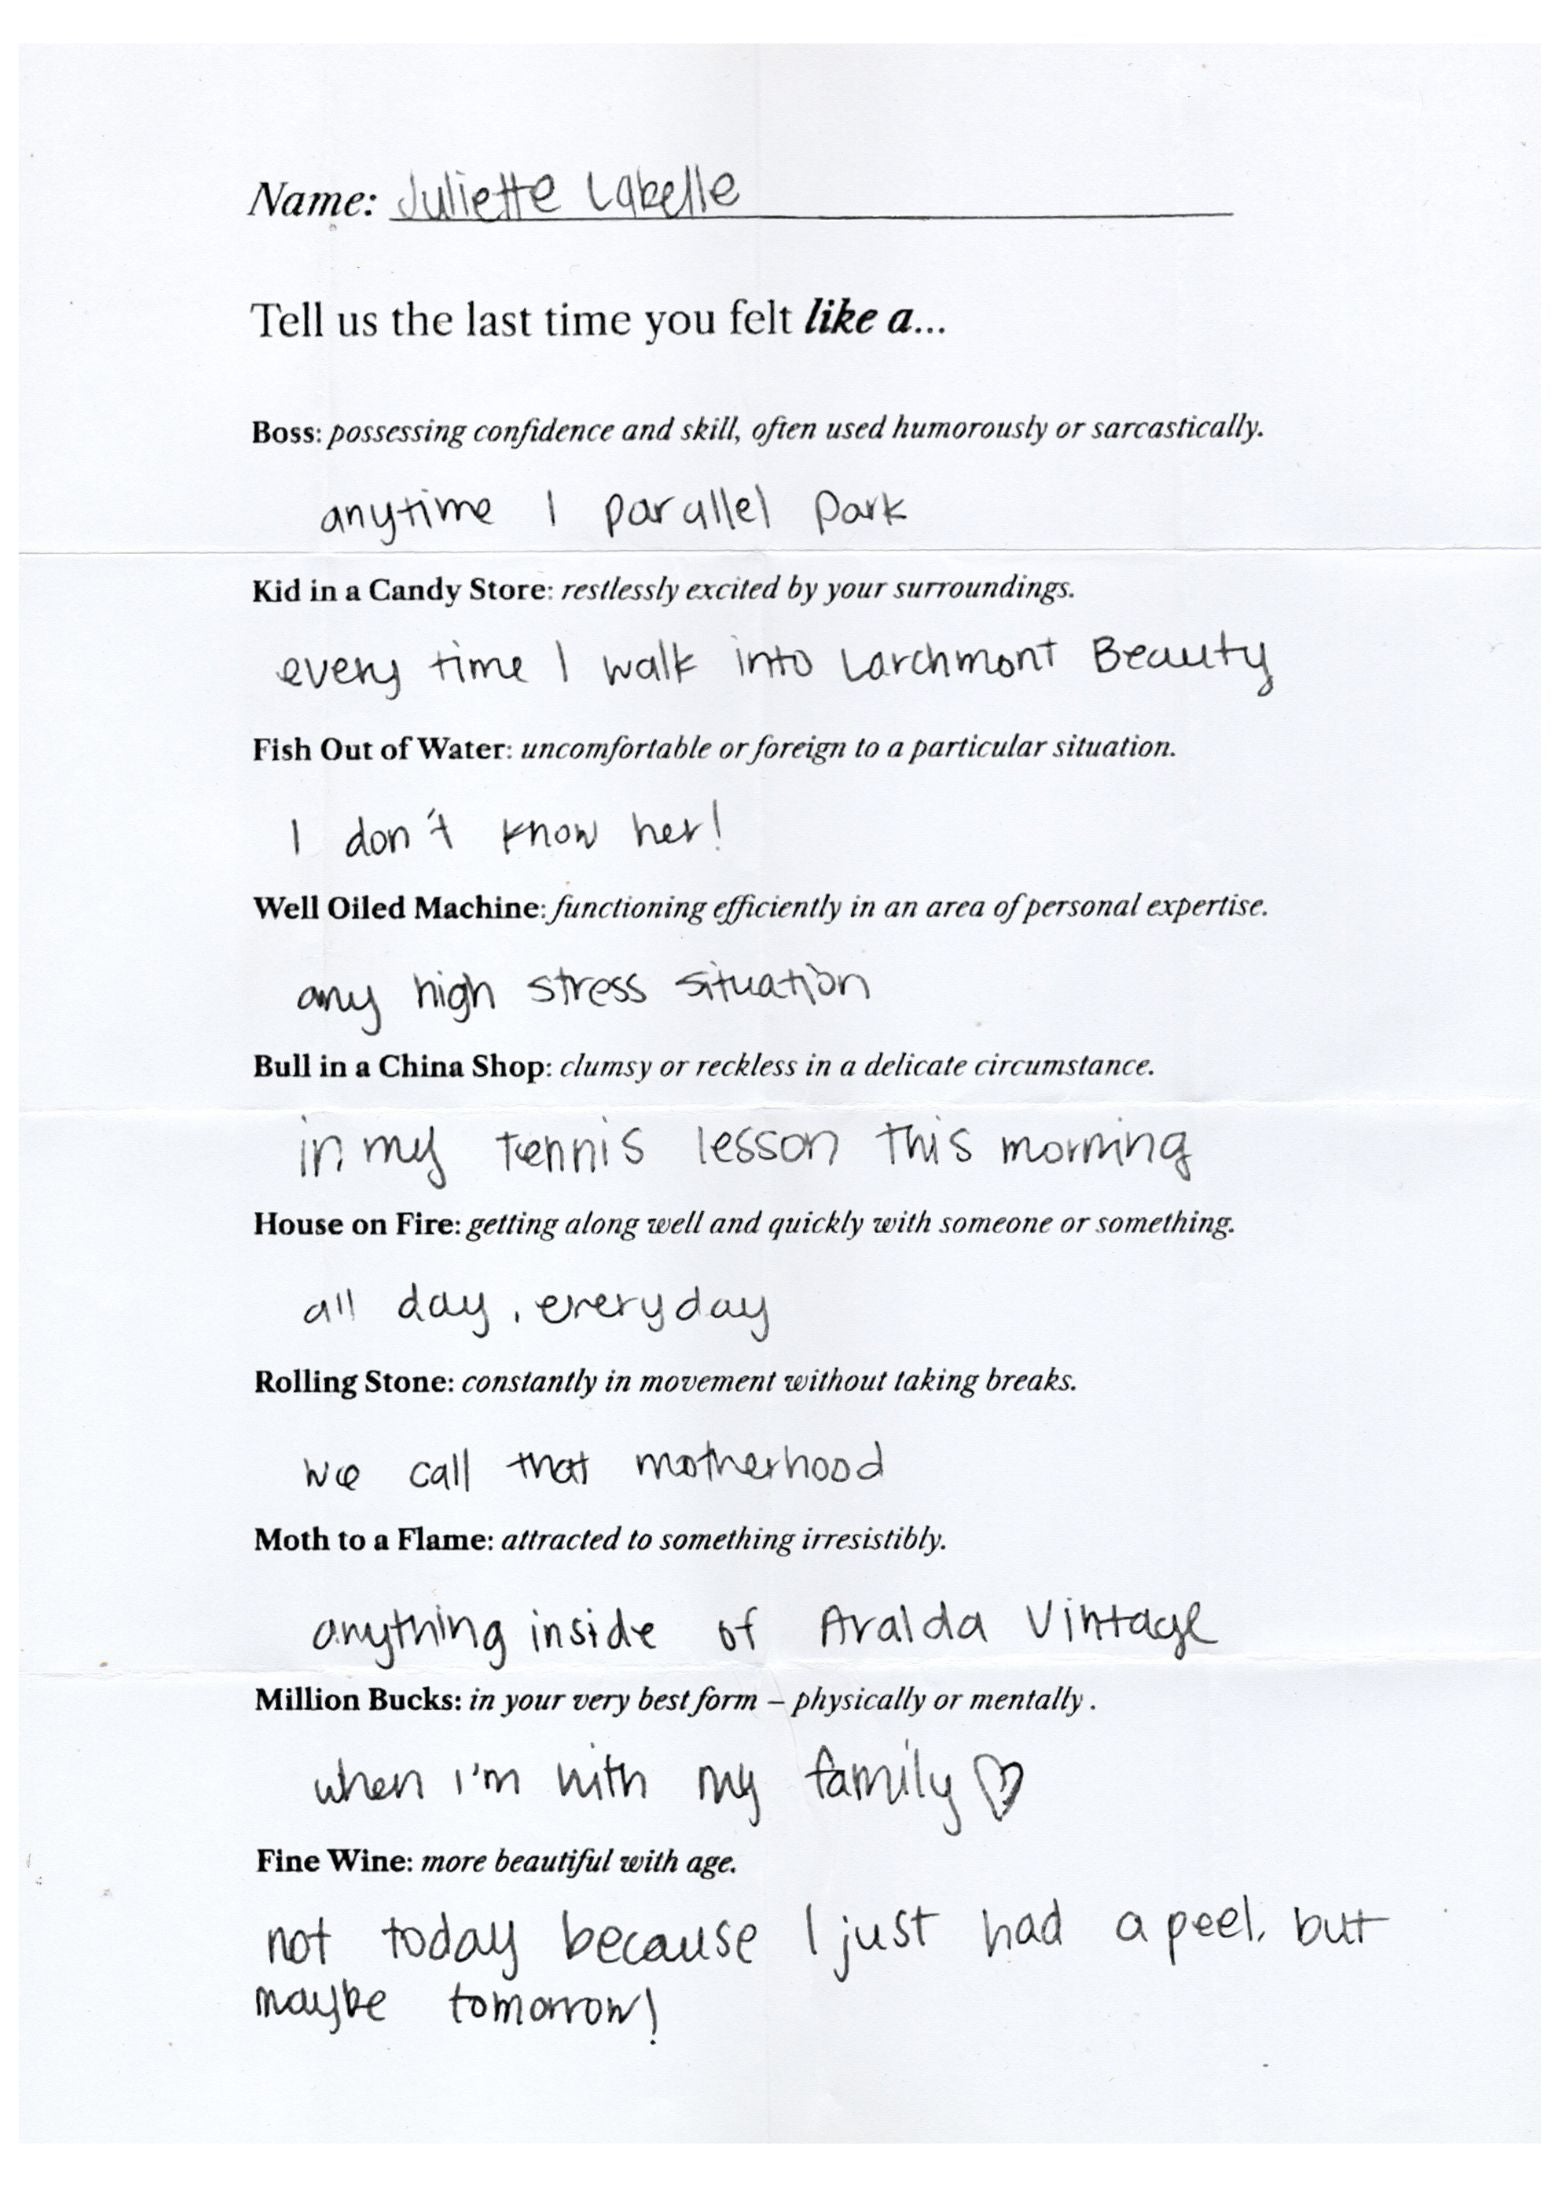 Name: Juliette Labelle
Tell us the last time you felt like a...
Boss: possessing confidence and skill, often used humorously or sarcastically.
anytime I parallel park
Kid in a Candy Store: restlessly excited by your surroundings.
every time I walk into Larchmont Beauty
Fish Out of Water: uncomfortable or foreign to a particular situation.
I don't know her!
Well Oiled Machine: functioning efficiently in an area of personal expertise.
any high stress situation
Bull in a China Shop: clumsy or reckless in a delicate circumstance.
in my tennis lesson this morning
House on Fire: getting along well and quickly with someone or something.
all day, everyday
Rolling Stone: constantly in movement without taking breaks.
we call that motherhood
Moth to a Flame: attracted to something irresistibly.
anything inside of Aralda Vintage
Million Bucks: in your very best form – physically or mentally .
when I'm with my family ♡
Fine Wine: more beautiful with age.
not today because I just had a peel, but
maybe tomorrow!